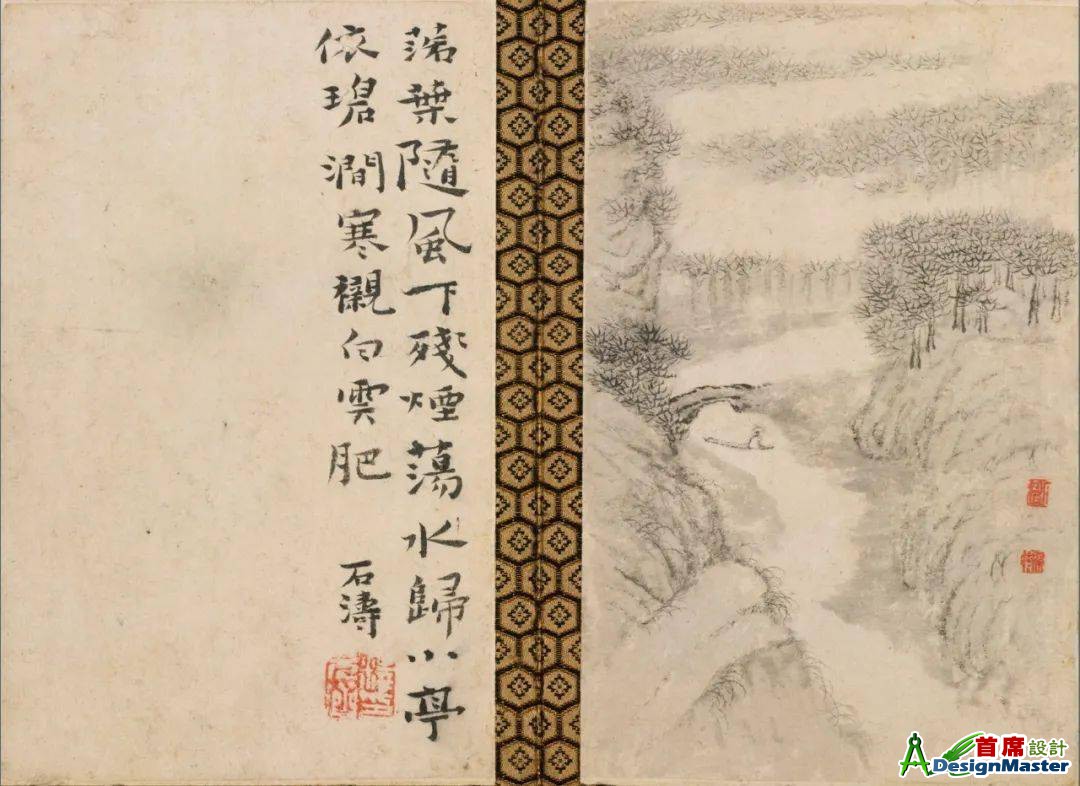 落葉隨風下殘煙蕩水歸小亭
依碧澗寒襯白雲肥
石濤
首席設計
ADesignMaster